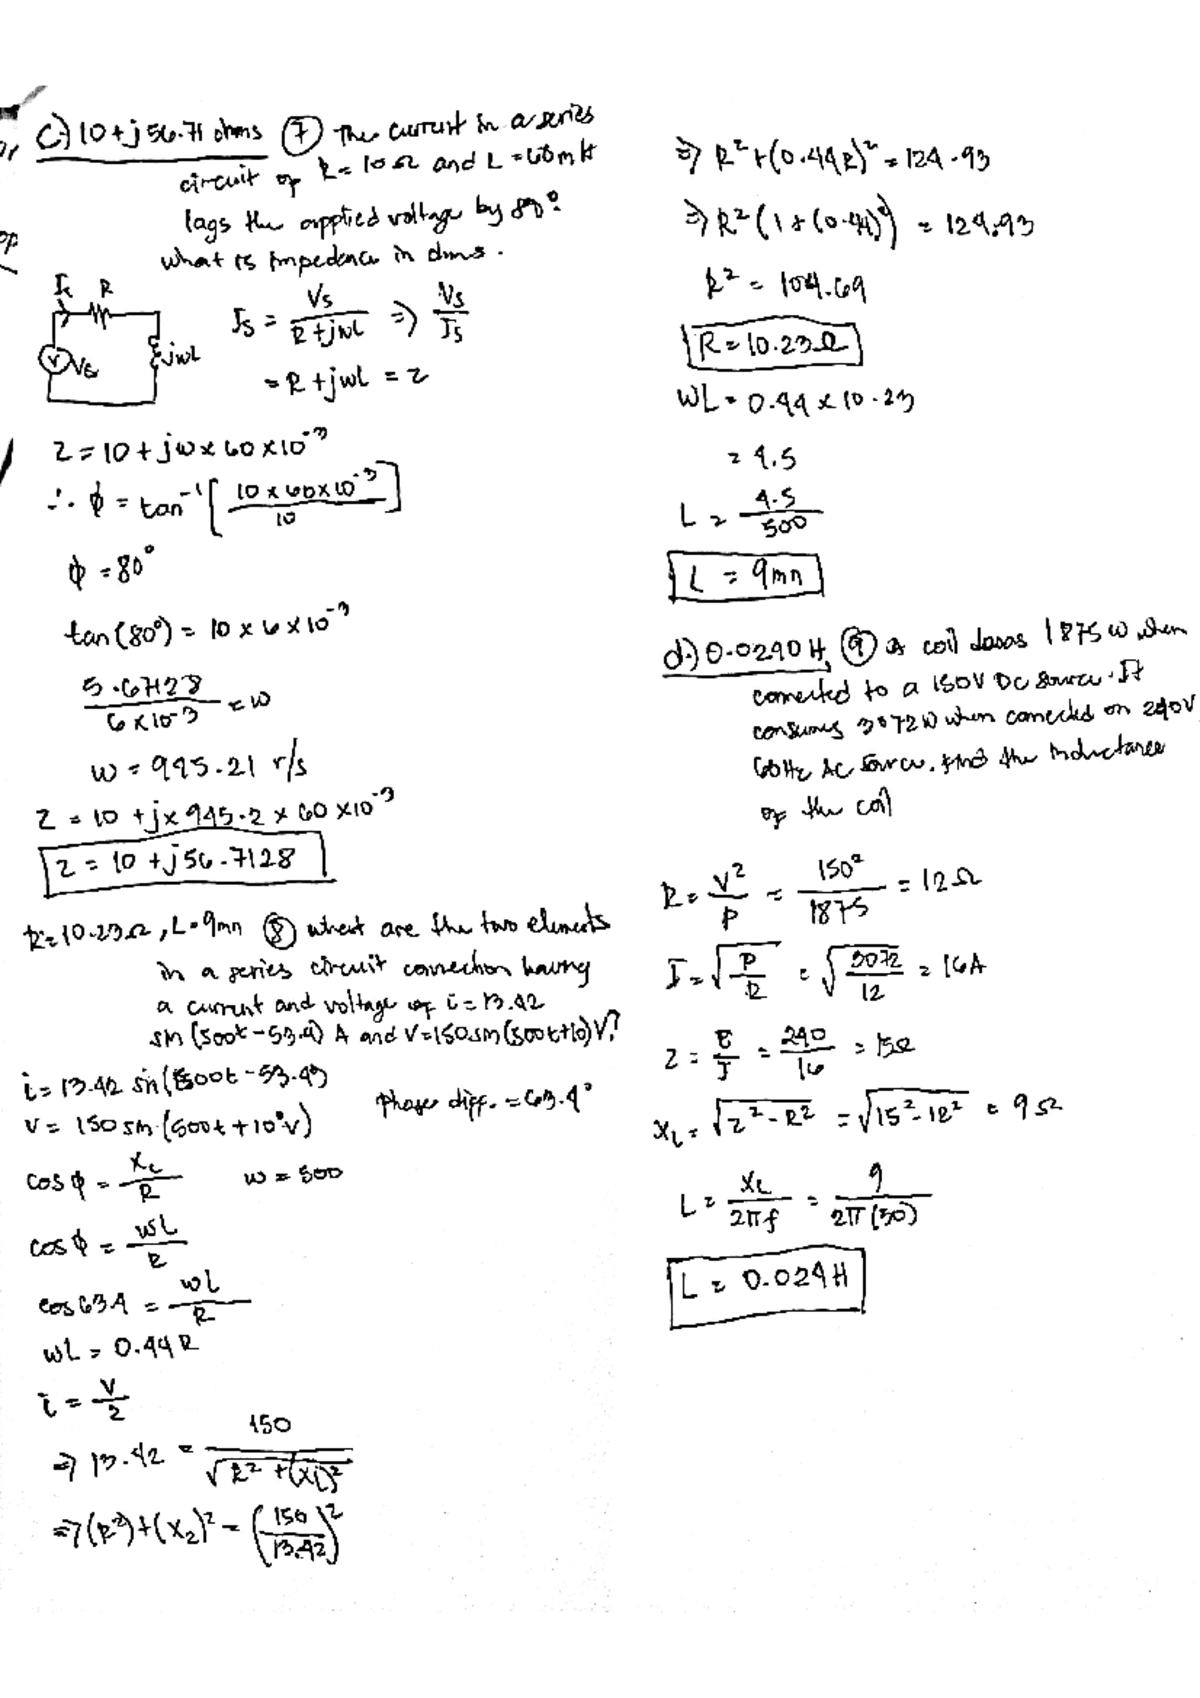 C.) 10+j56.71 ohms ⑦ The current in a series
circuit of R=10Ω and L=60mH
lags the applied voltage by 80°
what is impedance in ohms.
I R
V Vs jwL
Is = Vs / R+jwL => Vs / Is
= R+jwL = Z
Z = 10 + jw x 60 x 10^-3
∴ φ = tan^-1 [ 10 x 60 x 10^-3 / 10 ]
φ = 80°
tan(80°) = 10 x 6 x 10^-3
5.67128 / 6x10^-3 = w
w = 945.21 r/s
Z = 10 + j x 945.2 x 60 x 10^-3
Z = 10 + j56.7128
R=10.23Ω, L=9mH ⑧ what are the two elements
in a series circuit connection having
a current and voltage of i=13.42
sin(500t-53.4) A and V=150sin(500t+10)V?
i = 13.42 sin(500t-53.4)
V = 150 sin(500t+10°v)
phase diff. = 63.4°
cos φ = XL / R w = 500
cos φ = wL / R
cos 63.4 = wL / R
wL = 0.44R
i = V / Z
=> 13.42 = 150 / √R²+(XL)²
=> (R²)+(XL)² = (150 / 13.42)²
=> R²+(0.44R)² = 124.93
=> R²(1+(0.44)²) = 124.93
R² = 104.69
R = 10.23Ω
WL = 0.44 x 10.23
= 4.5
L = 4.5 / 500
L = 9mH
d.) 0.0240 H, ⑨ A coil draws 1875W when
connected to a 150V DC source. It
consumes 3072W when connected on 240V
60Hz AC source. find the Inductance
of the coil
R = V² / P = 150² / 1875 = 12Ω
I = √P / R = √3072 / 12 = 16A
Z = E / I = 240 / 16 = 15Ω
XL = √Z²-R² = √15²-12² = 9Ω
L = XL / 2πf = 9 / 2π(50)
L = 0.024H